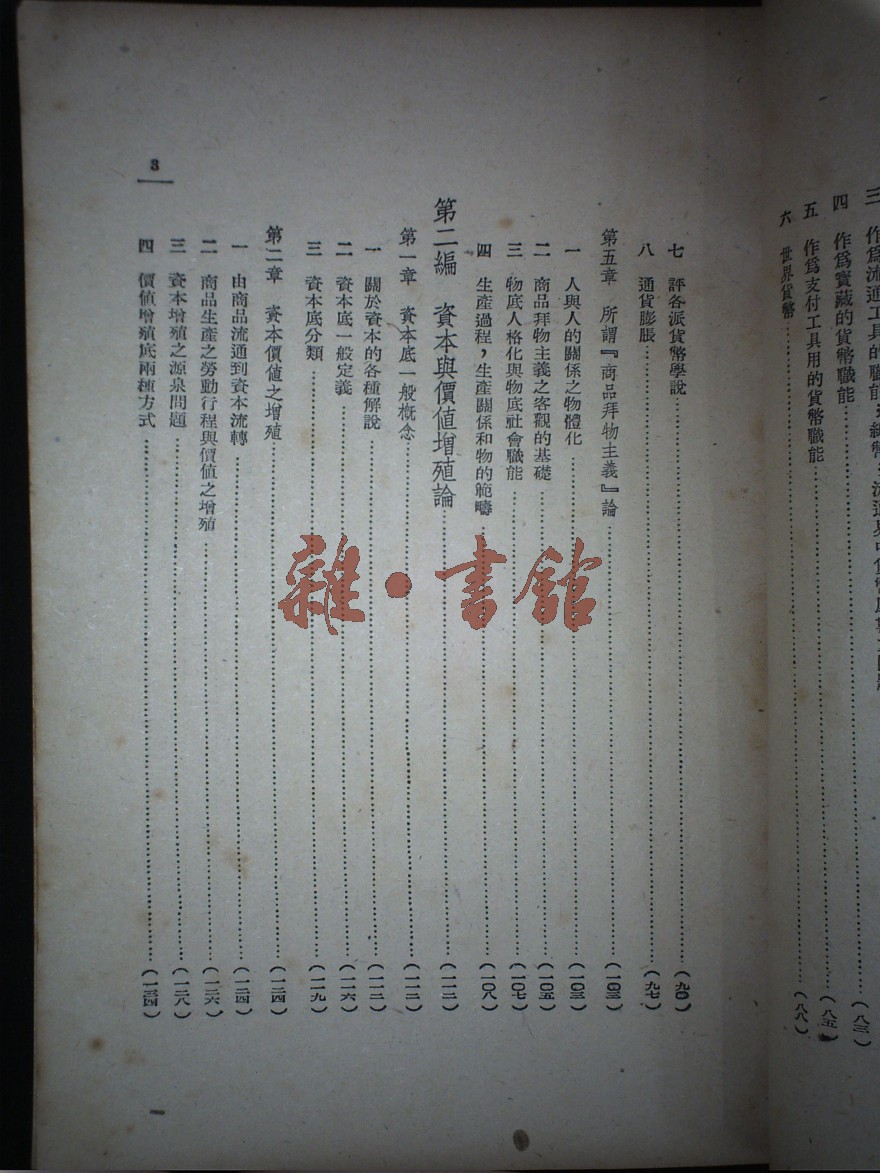 三 作爲流通工具的職能
四 作爲寶藏的貨幣職能……(八三)
五 作爲支付工具用的貨幣職能……(八五)
六 世界貨幣……(八八)
七 評各派貨幣學說……(九〇)
八 通貨膨脹……(九七)
第五章 所謂『商品拜物主義』論……(一〇三)
一 人與人的關係之物體化……(一〇三)
二 商品拜物主義之客觀的基礎……(一〇五)
三 物底人格化與物底社會職能……(一〇七)
四 生產過程，生產關係和物的範疇……(一〇八)
第二編 資本與價值增殖論……(一一二)
第一章 資本底一般概念……(一一二)
一 關於資本的各種解說……(一一二)
二 資本底一般定義……(一一六)
三 資本底分類……(一一九)
第二章 資本價值之增殖……(一二四)
一 由商品流通到資本流轉……(一二四)
二 商品生產之勞動行程與價值之增殖……(一二六)
三 資本增殖之源泉問題……(一二八)
四 價值增殖底兩種方式……(一三四)
3
雜·書館